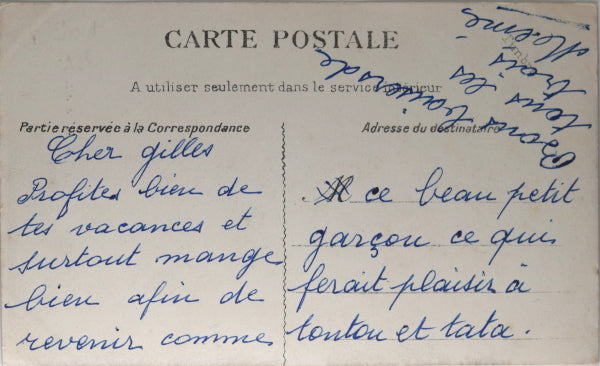 CARTE POSTALE
A utiliser seulement dans le service intérieur
Partie réservée à la Correspondance
Adresse du destinataire
Cher gilles
Profites bien de
tes vacances et
surtout mange
bien afin de
revenir comme
ce beau petit
garçon ce qui
ferait plaisir à
tonton et tata.
Bons baisers de
tous les
trois